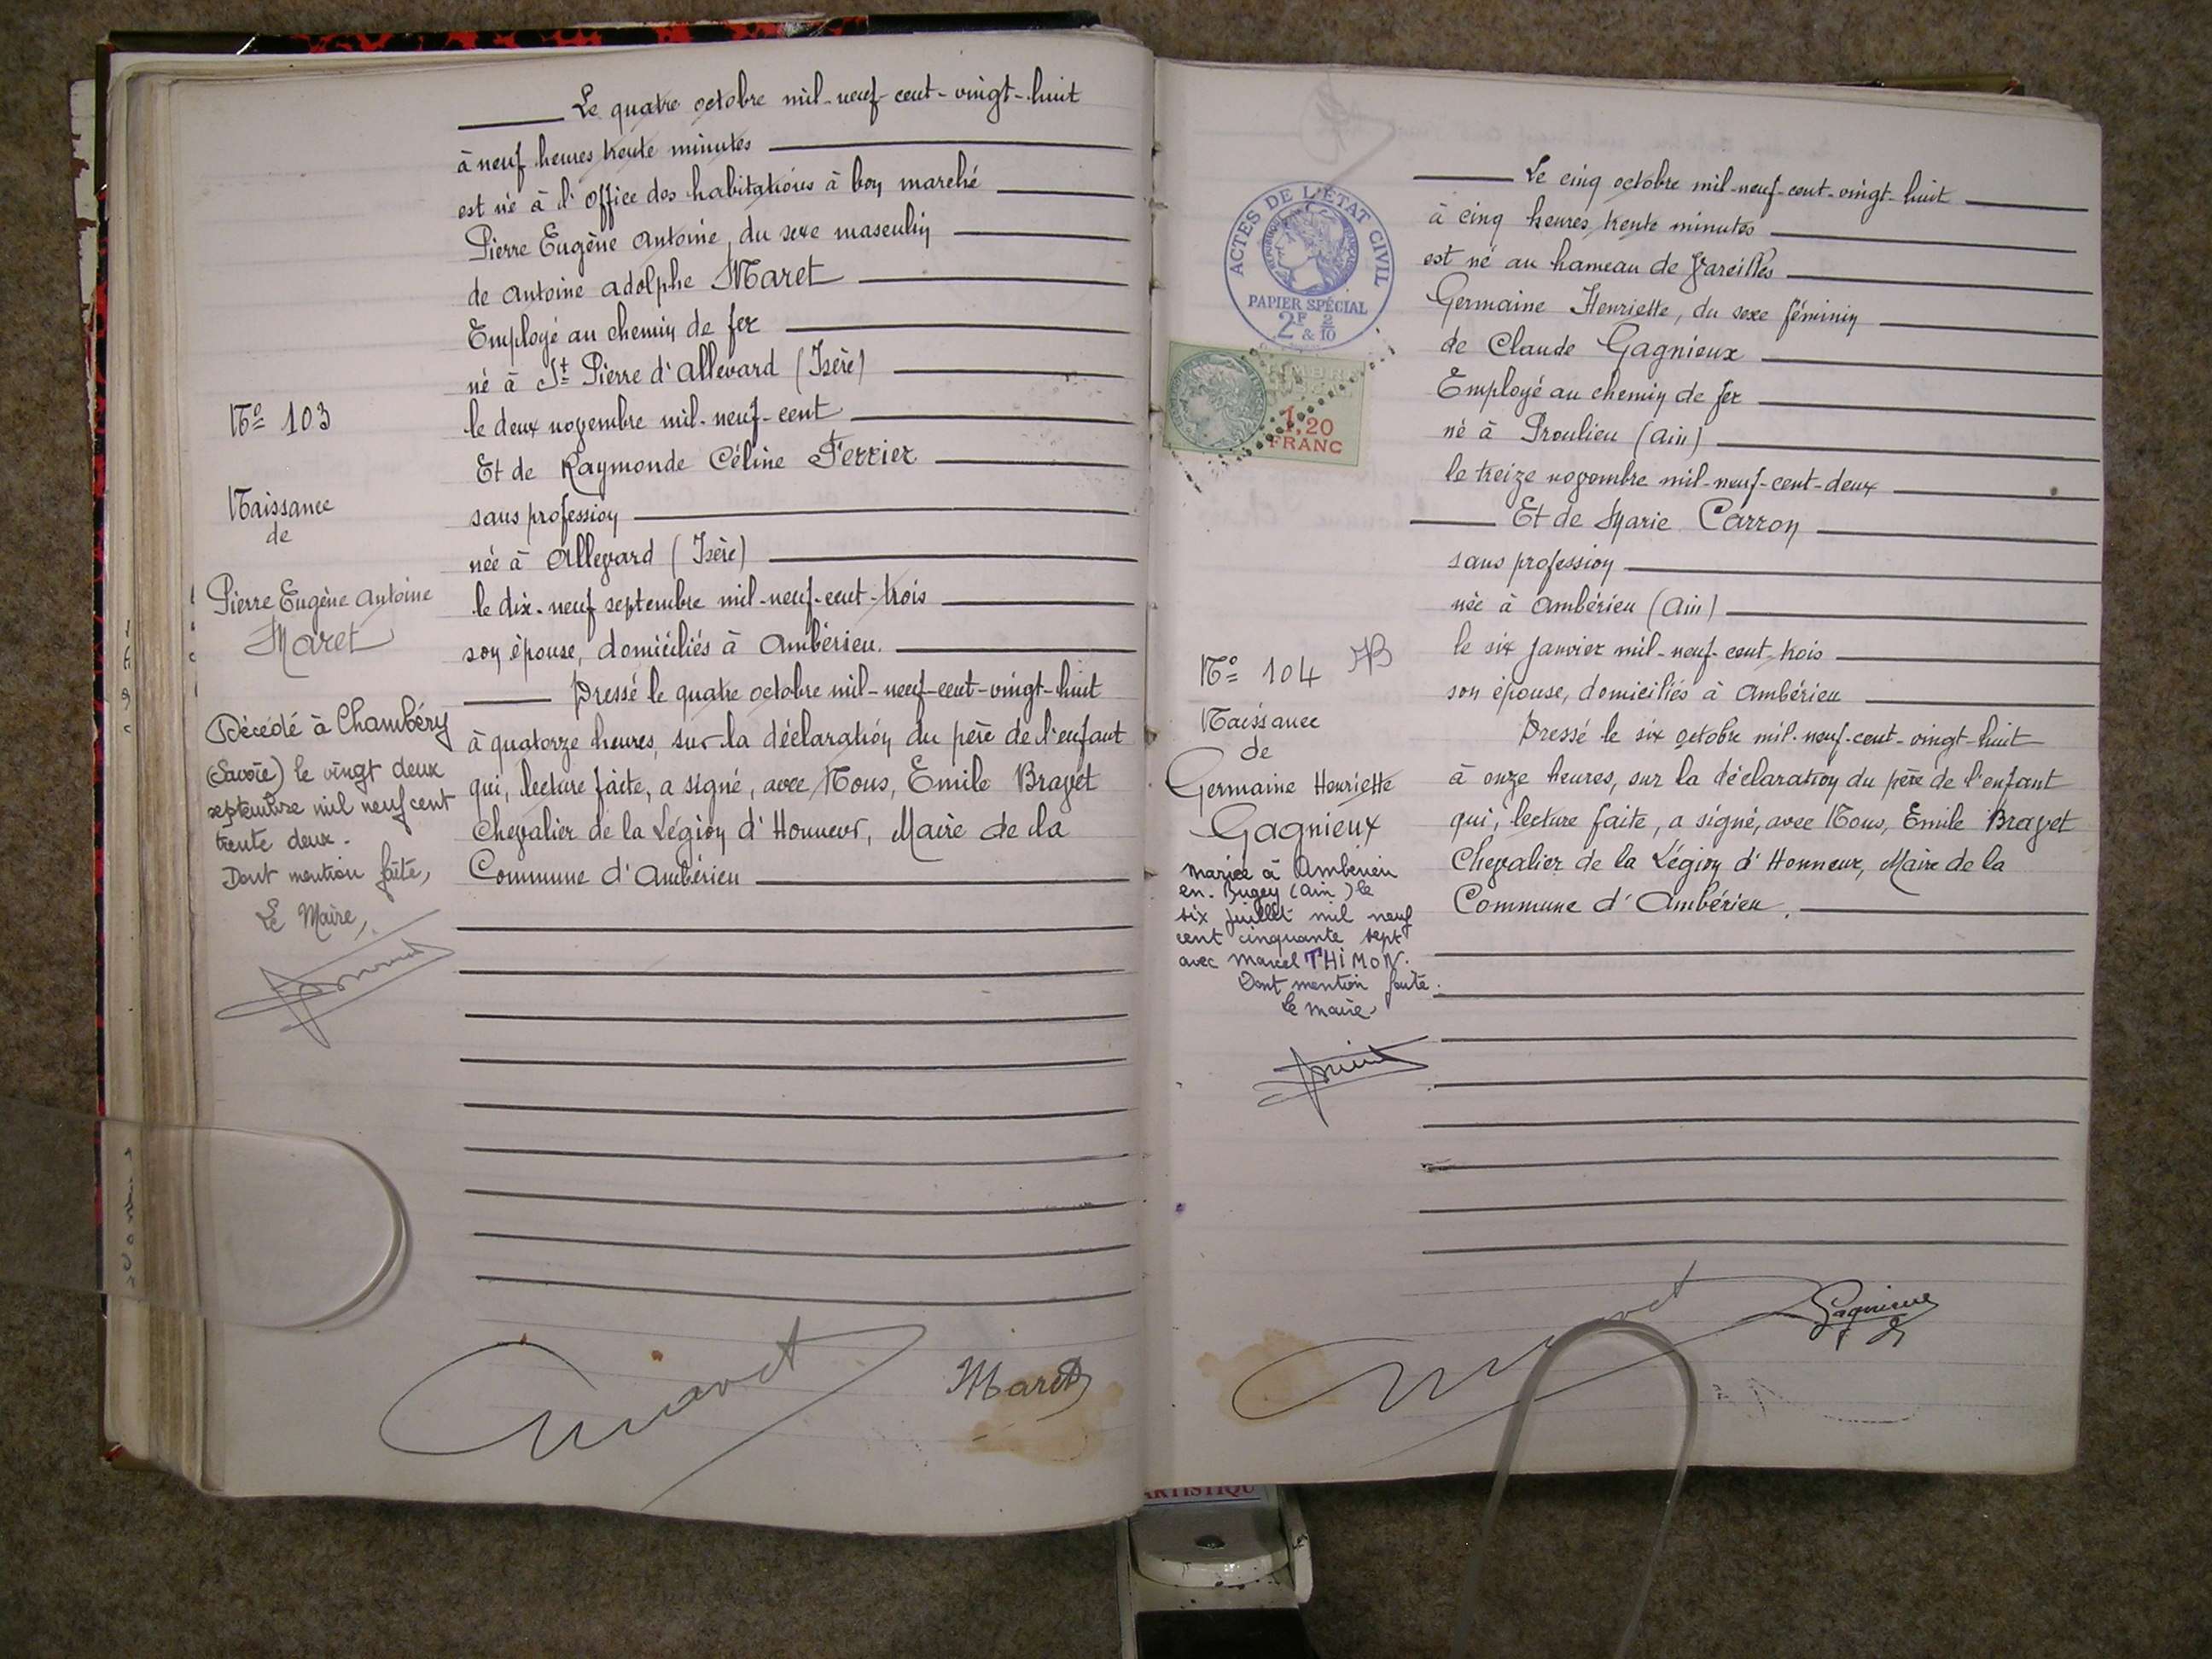 Le quatre octobre mil-neuf-cent-vingt-huit
à neuf heures trente minutes
est né à l'Office des habitations à bon marché
Pierre Eugène Antoine, du sexe masculin
de Antoine Adolphe Maret
Employé au chemin de fer
né à St Pierre d'Allevard (Isère)
le deux novembre mil-neuf-cent
Et de Raymonde Céline Ferrier
sans profession
née à Allevard (Isère)
le dix-neuf septembre mil-neuf-cent-trois
son épouse, domiciliés à Ambérieu.
Dressé le quatre octobre mil-neuf-cent-vingt-huit
à quatorze heures, sur la déclaration du père de l'enfant
qui, lecture faite, a signé, avec Nous, Emile Bravet
Chevalier de la Légion d'Honneur, Maire de la
Commune d'Ambérieu
No 103
Naissance
de
Pierre Eugène Antoine
Maret
Décédé à Chambéry
(Savoie) le vingt deux
septembre mil neuf cent
trente deux.
Dont mention faite,
Le Maire,
Maret
ACTES DE L'ÉTAT CIVIL
PAPIER SPÉCIAL
2F 2/10
&
1,20
FRANC
Le cinq octobre mil-neuf-cent-vingt-huit
à cinq heures trente minutes
est né au hameau de Vareilles
Germaine Henriette, du sexe féminin
de Claude Gagnieux
Employé au chemin de fer
né à Proulieu (Ain)
le treize novembre mil-neuf-cent-deux
Et de Marie Carron
sans profession
née à Ambérieu (Ain)
le six janvier mil-neuf-cent-trois
son épouse, domiciliés à Ambérieu
Dressé le six octobre mil-neuf-cent-vingt-huit
à onze heures, sur la déclaration du père de l'enfant
qui, lecture faite, a signé, avec Nous, Emile Bravet
Chevalier de la Légion d'Honneur, Maire de la
Commune d'Ambérieu.
No 104
Naissance
de
Germaine Henriette
Gagnieux
mariée à Ambérieu
en-Bugey (Ain) le
six juillet mil neuf
cent cinquante sept
avec Marcel THIMON.
Dont mention faite.
Le maire
Gagnieux
ARTISTIQU